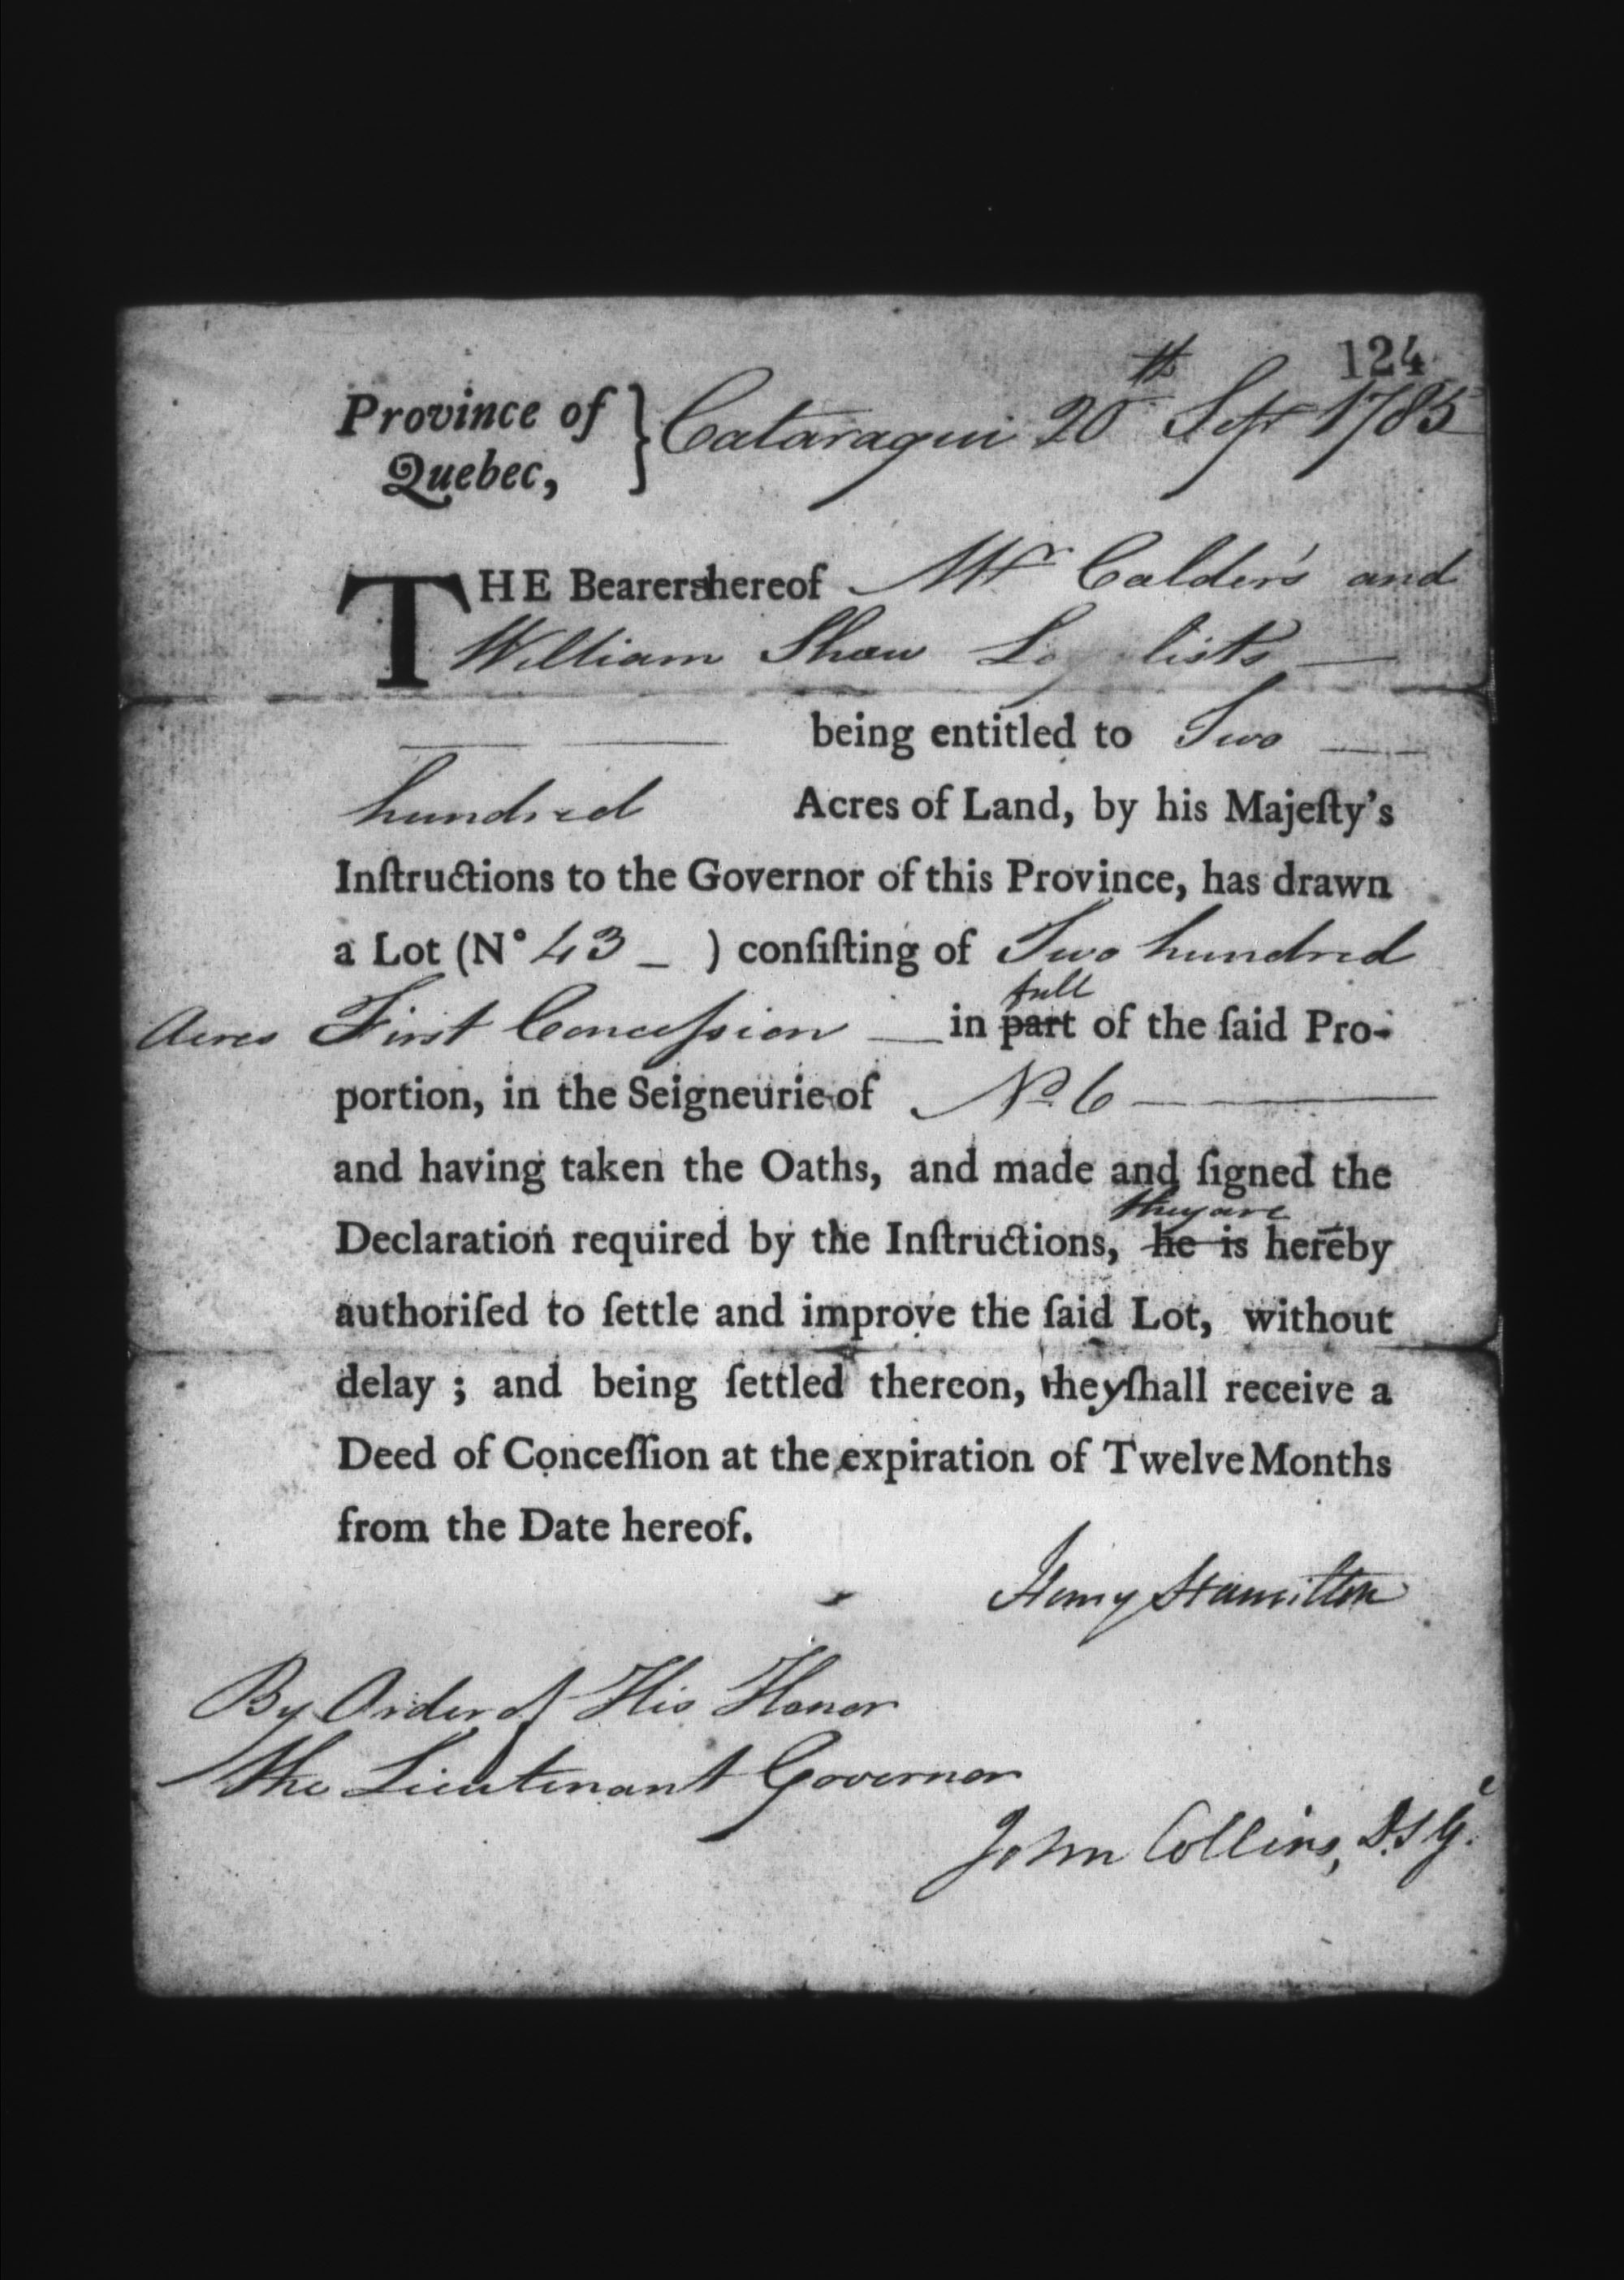 124
Province of } Cataraqui 20th Sepr 1785
Quebec,
THE Bearers hereof Mr Calder's and
William Shaw Loylists
being entitled to Two
hundred Acres of Land, by his Majeſty's
Inſtructions to the Governor of this Province, has drawn
a Lot (N° 43 _ ) conſiſting of Two hundred
full
Acres First Conceſsion — in part of the ſaid Pro-
portion, in the Seigneurie of No. 6
and having taken the Oaths, and made and ſigned the
they are
Declaration required by the Inſtructions, he is hereby
authoriſed to ſettle and improve the ſaid Lot, without
delay ; and being ſettled thereon, they ſhall receive a
Deed of Conceſſion at the expiration of Twelve Months
from the Date hereof.
Henry Hamilton
By Order of His Honor
the Lieutenant Governor
John Collins, D.S.G.